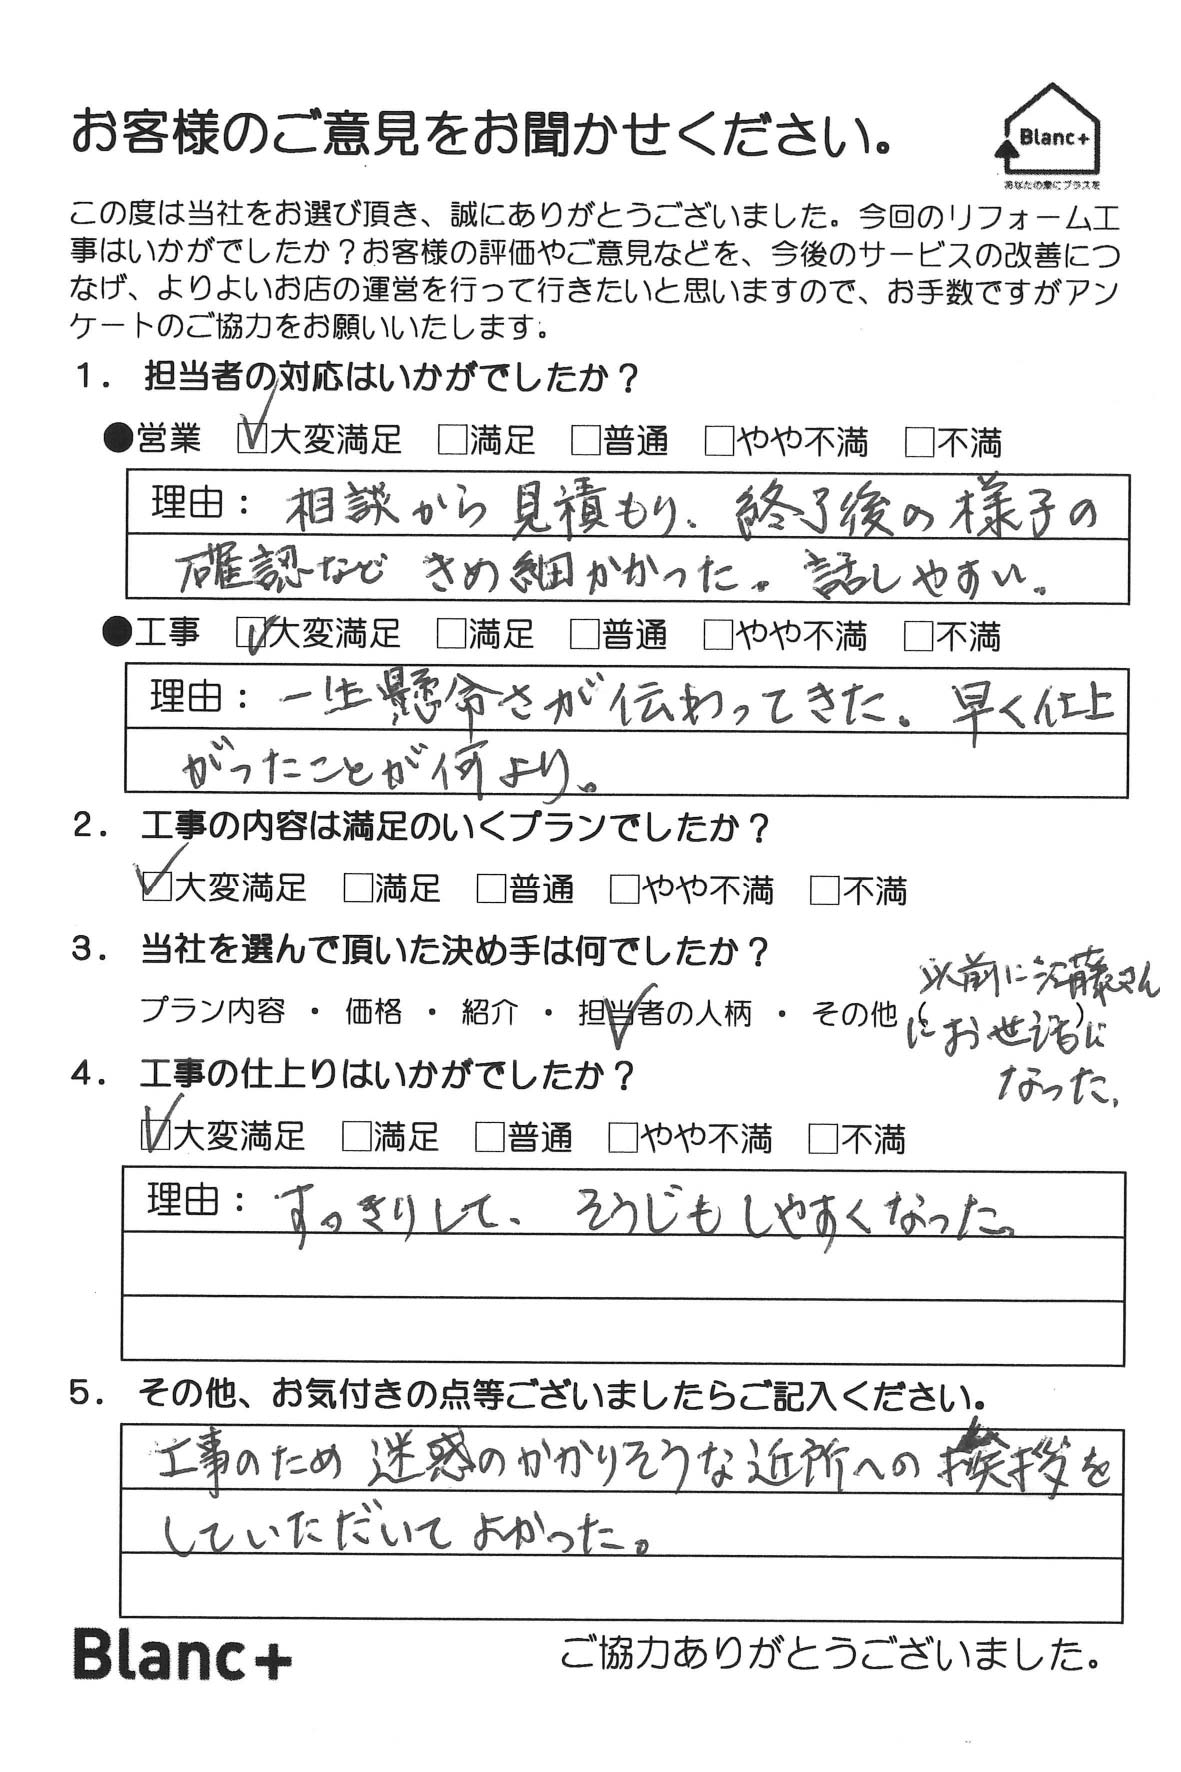 お客様のご意見をお聞かせください。
Blanc+
あなたの家にプラスを
この度は当社をお選び頂き、誠にありがとうございました。今回のリフォーム工
事はいかがでしたか？お客様の評価やご意見などを、今後のサービスの改善につ
なげ、よりよいお店の運営を行って行きたいと思いますので、お手数ですがアン
ケートのご協力をお願いいたします。
１．担当者の対応はいかがでしたか？
●営業 ☑大変満足 □満足 □普通 □やや不満 □不満
理由：相談から見積もり、終了後の様子の
確認など きめ細かかった。話しやすい。
●工事 ☑大変満足 □満足 □普通 □やや不満 □不満
理由：一生懸命さが伝わってきた。早く仕上
がったことが何より。
２．工事の内容は満足のいくプランでしたか？
☑大変満足 □満足 □普通 □やや不満 □不満
３．当社を選んで頂いた決め手は何でしたか？
プラン内容 ・ 価格 ・ 紹介 ・ 担当者の人柄 ・ その他（ ）
以前に佐藤さん
にお世話に
なった、
４．工事の仕上りはいかがでしたか？
☑大変満足 □満足 □普通 □やや不満 □不満
理由：すっきりして、そうじもしやすくなった。
５．その他、お気付きの点等ございましたらご記入ください。
工事のため迷惑のかかりそうな近所への挨拶を
していただいてよかった。
Blanc+
ご協力ありがとうございました。